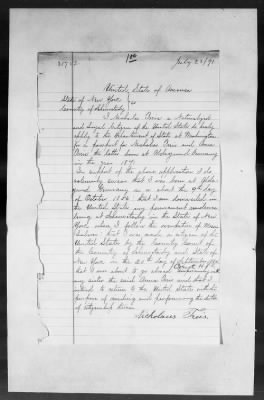 July 23/91
United State of America
State of New York
County of Schenectady
I Nicholas Treis a Naturalized
and Loyal Citizen of the United State do hereby
apply to the Department of State at Washington
for a Passport for Nicholas Treis and Anna
Treis the latter born at Germany
in the year 1871.
In support of the above application I do
solemnly swear that I was born at
Germany on or about the 9th day
of October 1852 that I am domiciled in
the United State my permanent residence
being at Schenectady in the State of New
York where I follow the occupation of
that I was made a citizen of the
United State by the County Court of
the County of Schenectady and State of
New York on the 26th day of September
that I am about to go abroad temporarily with
my sister the said Anna Treis and that I
intend to return to the United State with the
purpose of residing and performing the duties
of citizenship therein
Nicholaus Treis